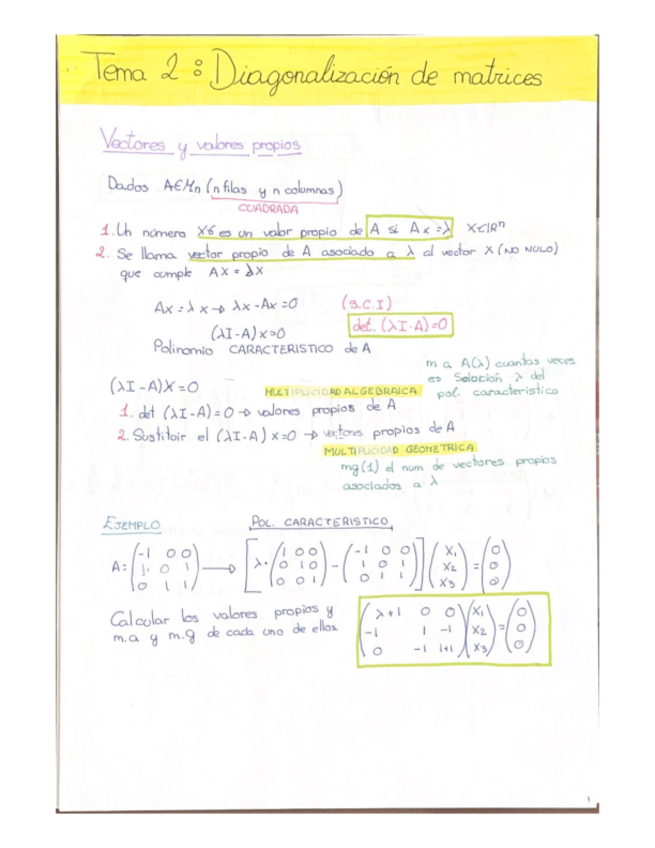 Tema 2: Diagonalización de matrices
Vectores y valores propios
Dados A∈Mn (n filas y n columnas)
CUADRADA
1. Un número X6 es un valor propio de A si Ax=λ X∈ℝⁿ
2. Se llama vector propio de A asociado a λ al vector X (NO NULO)
que cumple AX = λX
Ax = λx → λx - Ax = 0 (S.C.I)
(λI-A)x=0 det. (λI-A)=0
Polinomio CARACTERISTICO de A
m a A(λ) cuantas veces
es Solución λ del
pol. caracteristica
(λI-A)X=0 MULTIPLICIDAD ALGEBRAICA
1. det (λI-A)=0 → valores propios de A
2. Sustituir el (λI-A) x=0 → vectores propios de A
MULTIPLICIDAD GEOMETRICA
mg(1) el num de vectores propios
asociados a λ
EJEMPLO POL. CARACTERISTICO
A= (-1 0 0) → [λ·(1 0 0) - (-1 0 0)] (X₁) = (0)
(1 0 1) (0 1 0) (1 0 1) (X₂) (0)
(0 1 1) (0 0 1) (0 1 1) (X₃) (0)
Calcular los valores propios y
m.a y m.g de cada uno de ellos
(λ+1 0 0) (X₁) = (0)
(-1 1 -1) (X₂) (0)
(0 -1 1+1) (X₃) (0)
1